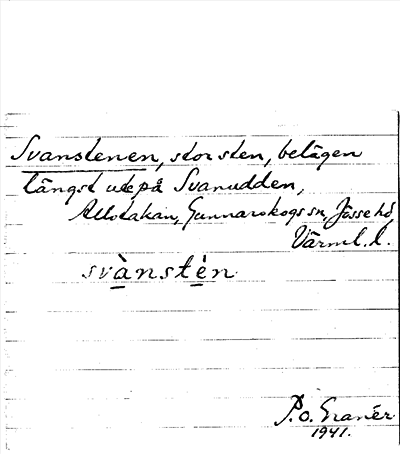 Svanstenen, stor sten, belägen
längst ute på Svanudden,
Allstakan, Gunnarskogs sn, Jösse hd,
Värml. l.
svànstèn
P.O. Granér
1941.